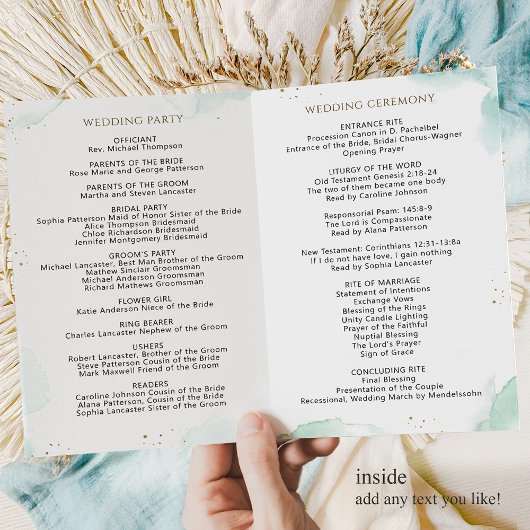 WEDDING PARTY
OFFICIANT
Rev. Michael Thompson
PARENTS OF THE BRIDE
Rose Marie and George Patterson
PARENTS OF THE GROOM
Martha and Steven Lancaster
BRIDAL PARTY
Sophia Patterson Maid of Honor Sister of the Bride
Alice Thompson Bridesmaid
Chloe Richardson Bridesmaid
Jennifer Montgomery Bridesmaid
GROOM'S PARTY
Michael Lancaster, Best Man Brother of the Groom
Mathew Sinclair Groomsman
Michael Anderson Groomsman
Richard Mathews Groomsman
FLOWER GIRL
Katie Anderson Niece of the Bride
RING BEARER
Charles Lancaster Nephew of the Groom
USHERS
Robert Lancaster, Brother of the Groom
Steve Patterson Cousin of the Bride
Mark Maxwell Friend of the Groom
READERS
Caroline Johnson Cousin of the Bride
Alana Patterson, Cousin of the Bride
Sophia Lancaster Sister of the Groom
WEDDING CEREMONY
ENTRANCE RITE
Procession Canon in D. Pachelbel
Entrance of the Bride, Bridal Chorus-Wagner
Opening Prayer
LITURGY OF THE WORD
Old Testament Genesis 2:18-24
The two of them became one body
Read by Caroline Johnson
Responsorial Psam: 145:8-9
The Lord is Compassionate
Read by Alana Patterson
New Testament: Corinthians 12:31-13:8a
If I do not have love, i gain nothing
Read by Sophia Lancaster
RITE OF MARRIAGE
Statement of Intentions
Exchange Vows
Blessing of the Rings
Unity Candle Lighting
Prayer of the Faithful
Nuptial Blessing
The Lord's Prayer
Sign of Grace
CONCLUDING RITE
Final Blessing
Presentation of the Couple
Recessional, Wedding March by Mendelssohn
inside
add any text you like!